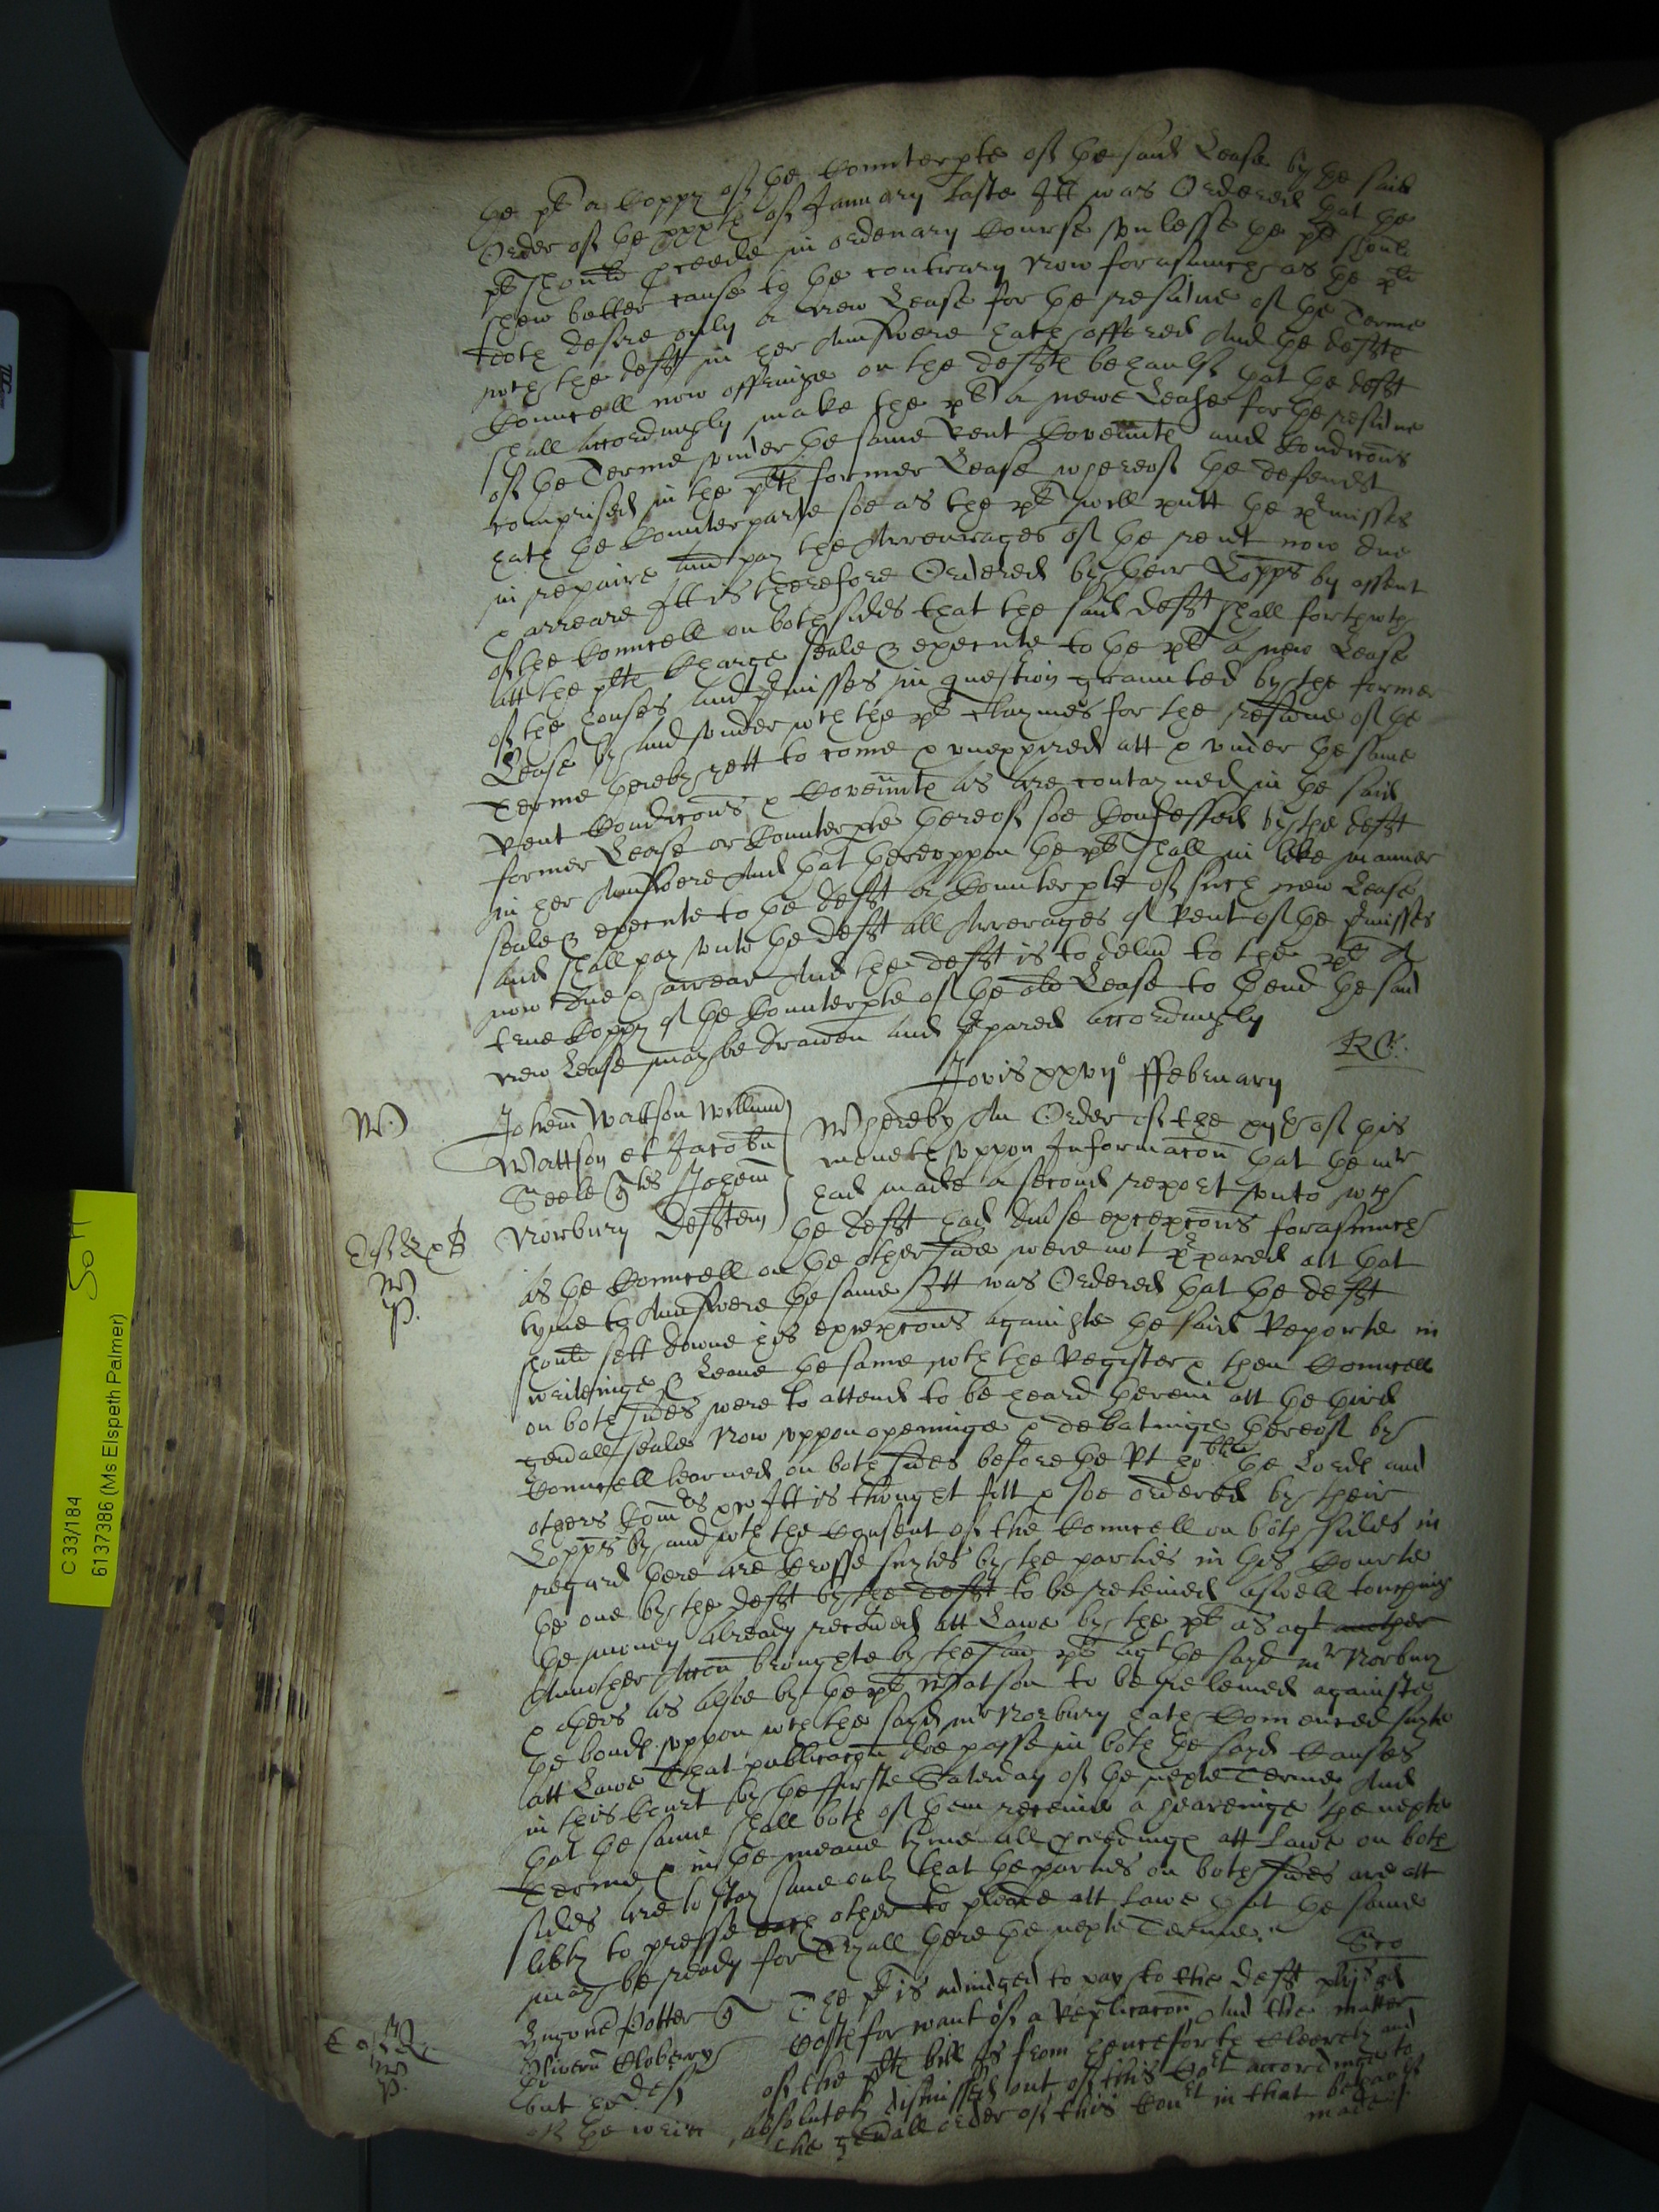 the plt a Coppy of the Counterpte of the said Lease by the said
Order of the xxxth of January laste Itt was Ordered that the
plt should pceede in ordenary Course vnlesse the plt should
shew better cause to the contrary Now forasmuch as the plt
doth desire only a new Lease for the residue of the Terme
wch the deft in her Aunswere hath offered And the defts
Councell now offringe on the defts behaulf that the deft
shall accordingly make the plt a newe Lease for the residue
of the Terme vnder the same Rent Covennts and Condicons
comprised in the plts former Lease whereof the defendt
hath the Counterparte soe as the plt will putt the pmisses
in repaire and pay the Arrerages of the rent now due
& arreare Itt is therefore Ordered by their Lopps by assent
of the Councell on both sides that the said deft shall forthwth
att the plts Charge seale & execute to the plt a new Lease
of the houses and pmisses in question graunted by the former
Lease by and vnder wch the plt claymes for the residue of the
Terme thereby yett to come & vnexpired att & vnder the same
Rent Condicons & Covennts as are contayned in the said
former Lease or Counterpte thereof soe Confessed by the deft
in her Aunswere And that therevppon the plt shall in like manner
seale & execute to the deft a Counterpte of such new Lease
and shall pay vnto the deft all Arrerages of Rent of the pmisses
now due & arrear And the deft is to delivr to the plt A
true Coppy of the Counterpte of the old Lease to thend the said
new Lease may be drawen and ppared accordingly
RC.
Jovis xxvijo ffebruary
W
Johem Wattson Willum
Wattson et Jacobu
Seele Quts Johem
Norbury Deftem
Whereby An Order of the xijth of this
moneth vppon Informacon that the mr
had made a second report vnto wch
the deft had divse excepcons forasmuch
as the Councell on the other side were not ppared att that
tyme to Aunswere the same Itt was Ordered that the deft
should sett downe his excepcons againste the said Reporte in
writeinge & Leave the same wth the Register & then Councell
on both sides were to attend to be heard therein att the third
genrall seale Now vppon openinge & debatinge thereof by
Councell learned on both sides before the Rt hoble the Lords and
others Comrs &c Itt is thought fitt & soe ordered by their
Lopps by and wth the Consent of the Councell on both sides in
regard there are Crosse suytes by the parties in this Courte
the one by the deft by the deft to be releived aswell touching
the money already recovered att Lawe by the plt as agt another
Annother Accon broughte by the said plt agt the sayd mr Norbury
& others as alsoe by the plt Wattson to be releived againste
the bonds vppon wch the sayd mr Norbury hath Commenced suyte
att Lawe That publicacon doe passe in both the sayd Causes
in this Court by the firste Saterday of the nexte Terme And
that the same shall both of them receive a hearinge the nexte
Terme & in the meane tyme all pceedings att Lawe on both
sides are to stay save only that the parties on both sides are att
libty to presse each other to pleade att Lawe that the same
may be ready for Tryall there the nexte Terme.
W
P.
Potter Q
The plt is adiudged to pay to the deft
Costs for want of a Replicacon And the matter
of the plts bill is from henceforth Cleerely and
absolutely dismissed out of this Cort according to
the genrall order of this Court in that behaulf
made
W
P.
C 33/184
6137386 (Ms Elspeth Palmer)